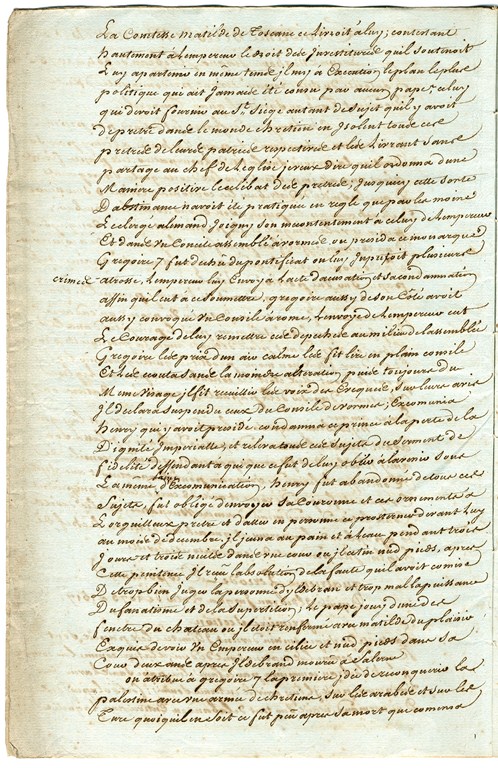 La Comtesse Matilde de Toscane ce Livroit à luy; contestant
hautement à Lempereur le droit dede Jnvestitures quil soutenoit
Luy apartenir en meme tems jl mis à Execution le plan le plus
politique qui ait Jamais été connu par aucun pape; celuy
qui devoit fournir au St. Siege autant de Sujet quil y avoit
de pretre dans le monde chretien en Jsolent tous ces
pretres de leurs patries respectives et les Livrant sans
partage au chef de Leglise jeveux dire quil ordonna dune
Maniere positive le celibat des pretres, Jusquicy cette sorte
Dabstinance navoit eté pratiquée en regle que par les moine
Le clerge alemand Joigny son mecontentement à celuy de Lempereur
Et dans Un Concile assemblé à vormes ou presida ce monarque
Gregoire 7 fut dechu du pontificat ou luy Jmputoit plusieurs
crimes atrosse, Lempereur luy Envoya Lacte dacusation et sa condamnation
affin quil eut a ce soumettre, gregoire aussy de son Coté avoit
aussy convoqué Un Consile à rome, Lenvoyé de Lempereur eut
Le Courage de luy remettre ces depeches au milieu de lassemblée
Gregoire les pria dun air calme les fit lire en plain consile
Et les ecouta sans la moindre alteration puis toujours du
Meme Visage jl fit recueillir les voix des Eveques, sur leurs avis
Jl declara suspendu ceux du Consile de vormes; Excomunia
henry qui y avoit presidé condamna ce prince à la perte de la
Dignité Jmperialle, et releva tous ces sujets du serment de
fidelité deffendant a qui que ce fut de luy obeir à lavenir sous
La même peine d'Excomunication, henry fut abandonné de tous ces
Sujets, fut obligé denvoyer sa Couronne et ces ornements a
Lorguilleux pretre et dallér en personne ce prosterner devant luy
au mois de decembre, jl jeuna au pain et à leau pendant trois
Jours et trois nuits dans une cour ou jl etoit nud pieds, apres
Cette penitence Jl recu labsolution de la faute quil avoit comise
De trop bien Juger la personne dyldebrans et trop mal la puissance
Du fanatisme et de la Superstition; Le pape jouy dune des
fenetre du chateau ou jl étoit renfermé avec matilde du plaisir
Exquis de voir Un Empereur en cilice et nud pieds dans sa
Cour deux ans apres Jldebrand mouru a Salerne
on atribue à gregoire 7 la premiere jdée de reconquerir la
palestine avec une armée de chretiens, sur les arabes et sur les
Turc quoiquil en soit ce fut peu apres sa mort que comensa